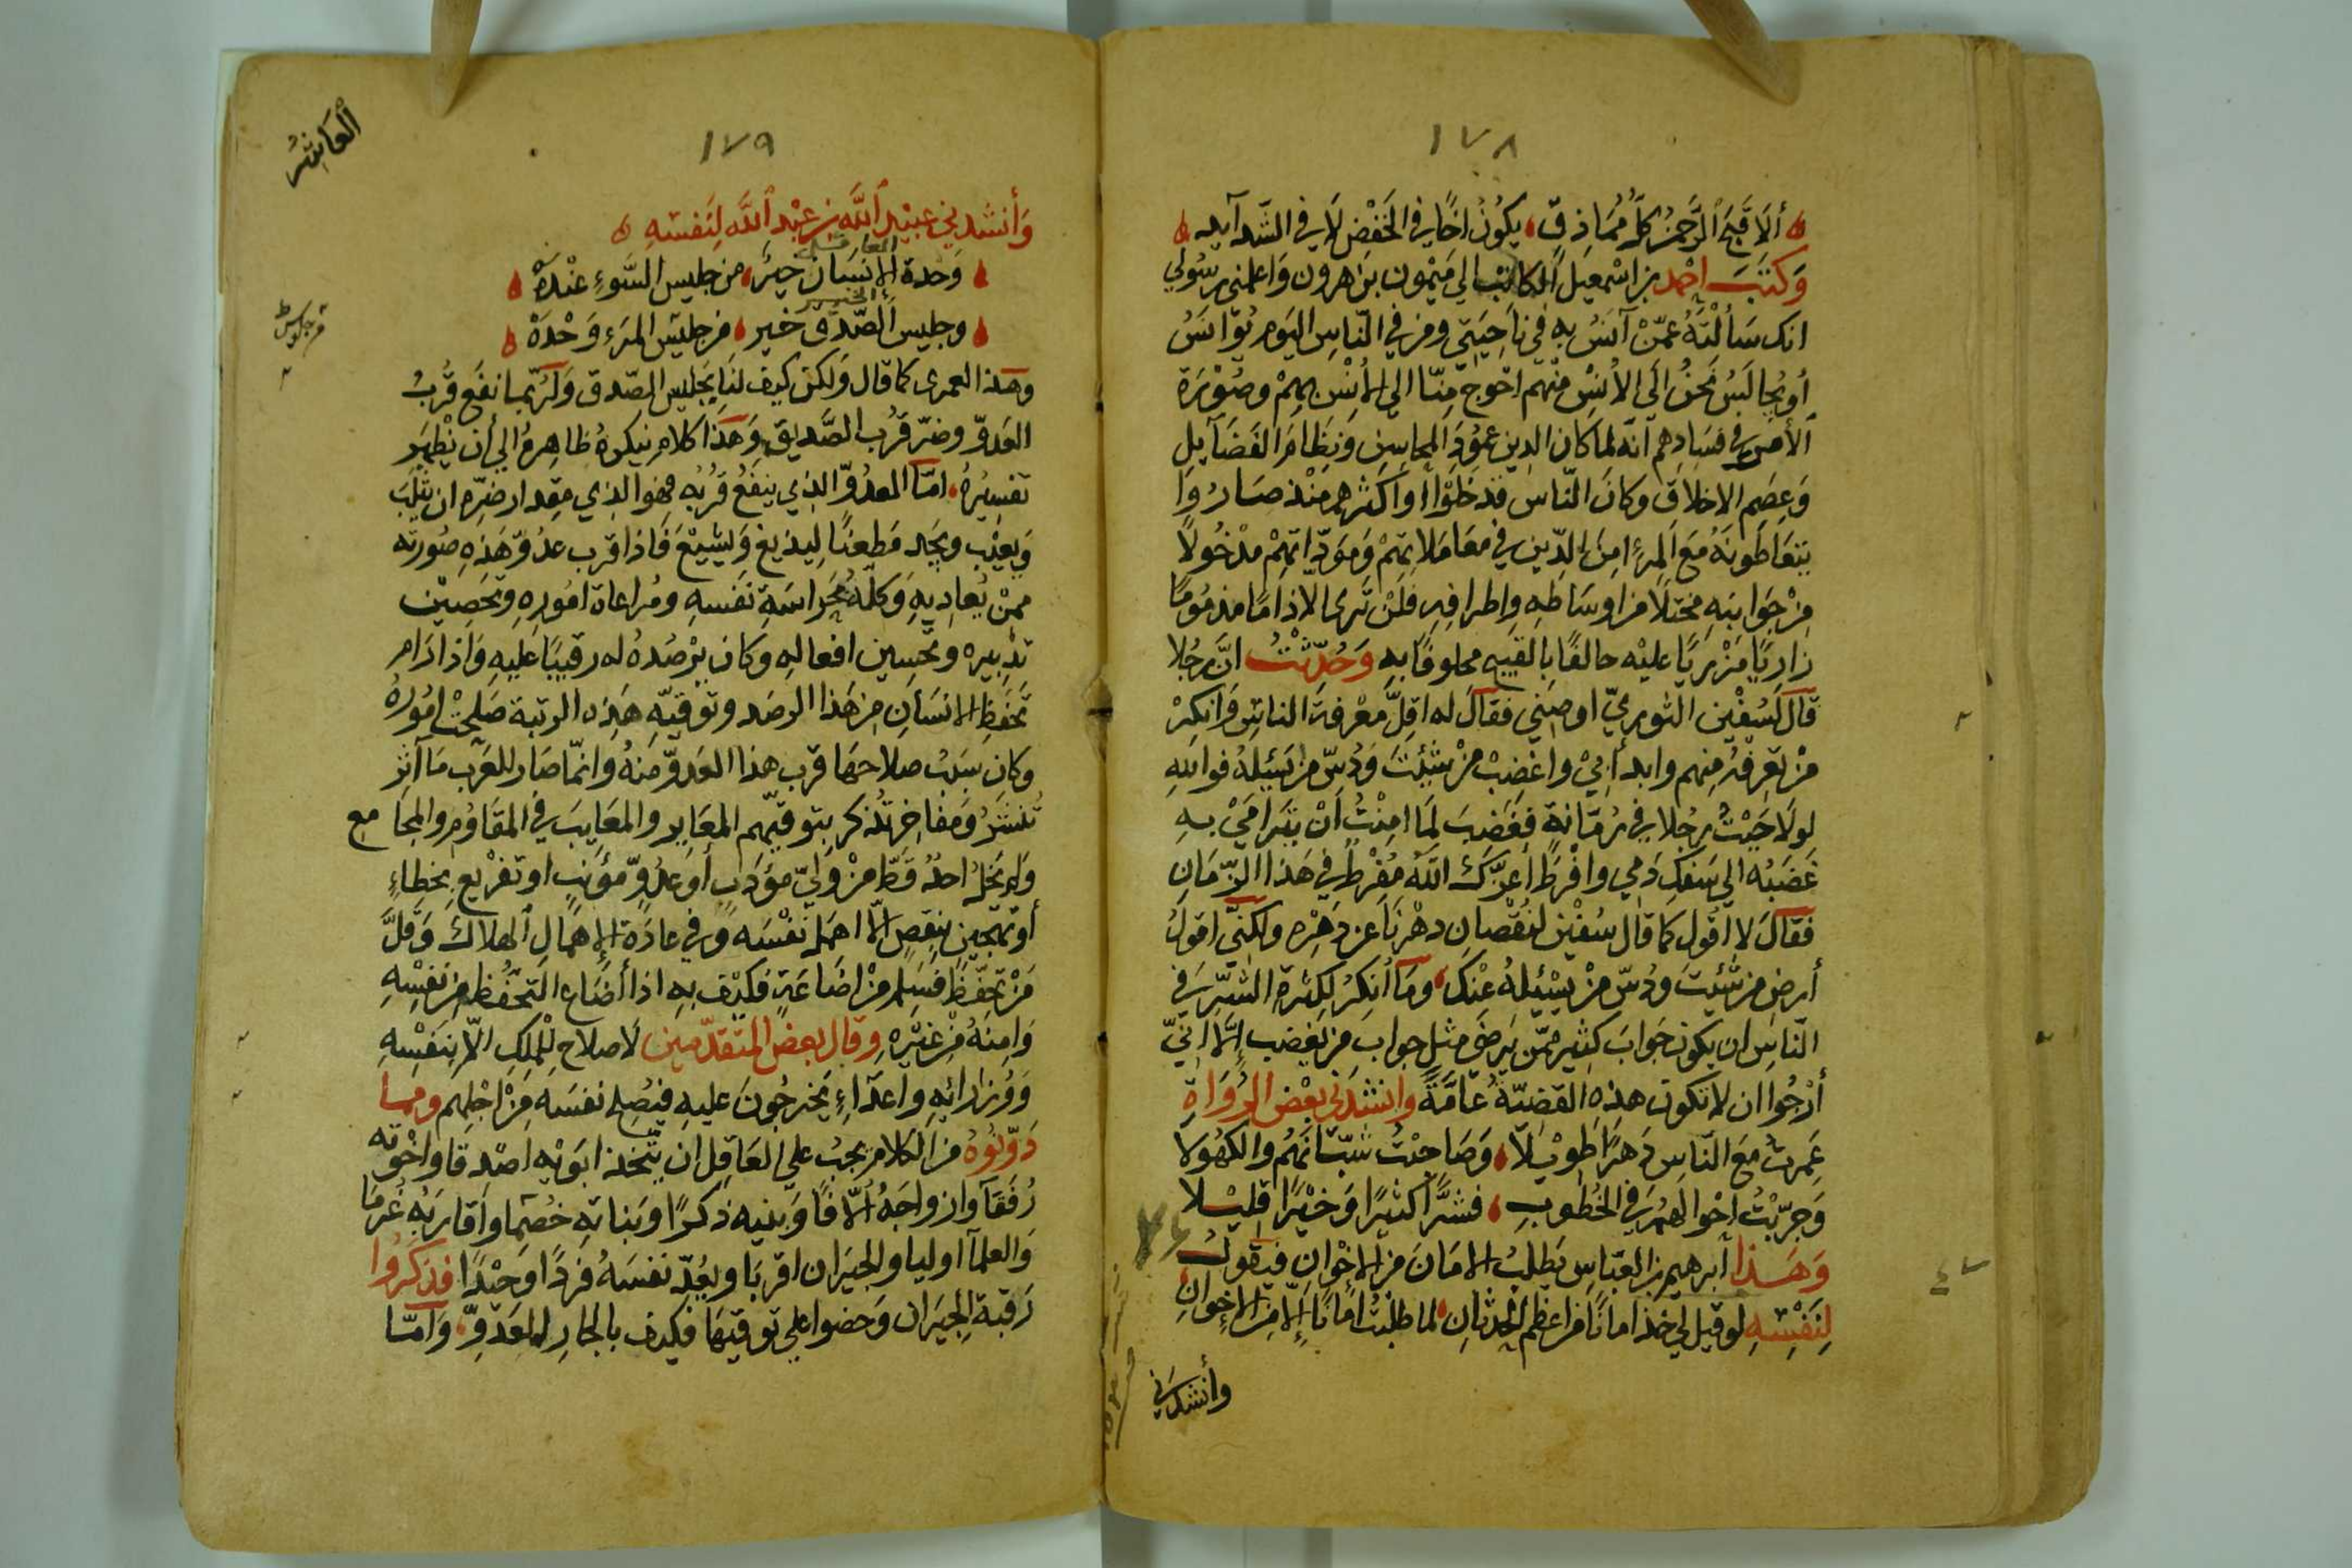 ١٧٨
ألا قبح الرحمن كل مماذق يكون اخا في الخفض لا في الشدآيد
وكتب احمد بن اسمعيل الكاتب الى ميمون بن هرون واعلمني رسولي
انك سألته عمن آنس به في ناحيتي ومن في الناس اليوم يؤانس
أو يجالس نحن الى الانس منهم احوج منا الى الأنس بهم وصورة
الأمر في فسادهم انه لما كان الدين عمود المحاسن ونظام الفضآيل
وعصم الاخلاق وكان الناس قد خلوا او اكثرهم منذ صاروا
يتعاطونه مع المرء من الدين في معاملاتهم وموداتهم مدخولا
من جوانبه مختلا من اوساطه واطرافه فلن ترى الا ذاما مذموما
زاريا مزريا عليه حالفا بالقبيح محلوفا به وحدثت ان رجلا
قال لسفين الثوري اوصني فقال له اقل معرفة الناس وانكر
من تعرفه منهم وابدأ بي واغضب من شئت ودس من يسئله فوالله
لولا جبت رجلا في رمانة فغضب لما امنت أن يترامى به
غضبه الى سفك دمي وافرط اعزك الله مفرط في هذا الزمان
فقال لا اقول كما قال سفين لنقصان دهرنا عن دهره ولكني اقول
أرض من شئت ودس من يسئله عنك وما أنكر لكثرة الشر في
الناس ان يكون جواب كثير ممن يرضى مثل جواب من يغضب إلا اني
أرجوا ان لا تكون هذه القضية عامة وانشدني بعض الرواة
عمرت مع الناس دهرا طويلا وصاحبت شبانهم والكهولا
وجربت احوالهم في الخطوب فشرا كثيرا وخيرا قليلا
وهذا ابرهيم بن العباس يطلب الامان من الاخوان فيقول
لنفسه لو قيل لي خذ امانا من اعظم الحدثان لما طلبت امانا إلا من الاخوان
وأنشدني
١٧٩
العاشر
وأنشدني عبيد الله بن عبد الله لنفسه
وحدة الانسان خير من جليس السوء عنده
وجليس الصدق خير من جليس المرء وحده
وهذا لعمري كما قال ولكن كيف لنا بجليس الصدق ولربما نفع قرب
العدو وضر قرب الصديق وهذا كلام ينكره ظاهره الى أن يظهر
تفسيره اما العدو الذي ينفع قربه فهو الذي مقدار ضره ان يثلب
ويعيب ويجد مطعنا ليذيع ويشيع فاذا قرب عدو هذه صورته
ممن يعاديه وكله بحراسة نفسه ومراعاة اموره وتحصين
تدبيره وتحسين افعاله وكان يرصده له رقيبا عليه واذا دام
تحفظ الانسان من هذا الرصد وتوقيه هذه الرتبة صلحت اموره
وكان سبب صلاحها قرب هذا العدو منه وانما صار للعرب مآثر
تنشر ومفاخر تذكر بتوقيهم المعاير والمعايب في المقاوم والمجامع
ولم يخل احد قط من ولي مؤدب أو عدو مؤنب او تقريع بخطاء
أو تهجين بنقص الا اهمل نفسه وفي عادة الإهمال الهلاك وقل
من تحفظ فسلم من اضاعة فكيف به اذا أضاع التحفظ من نفسه
وامنه من غيره وقال بعض المتقدمين لا صلاح للملك الا بنفسه
ووزرائه واعدآء يخرجون عليه فيصلح نفسه من اجلهم ومما
دونوه من الكلام يجب على العاقل ان يتخذ ابويه اصدقا واخوته
رفقآ وازواجه الافا وبنيه ذكرا وبناته خصما واقاربه غرما
والعلمآ اوليا والجيران اقربا ويعد نفسه فردا وحيدا فذكروا
رقبة الجيران وحضوا على توقيها فكيف بالجار العدو وأما